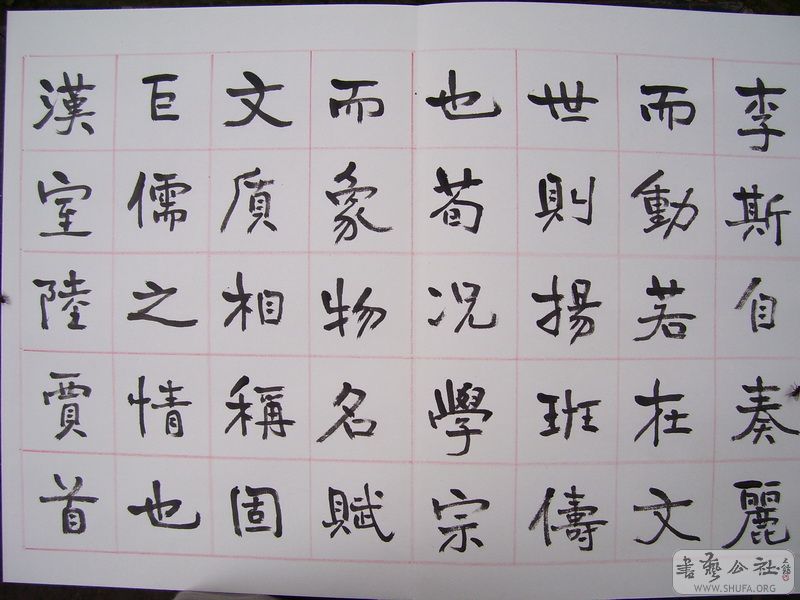 李斯自奏麗
而動若在文
世則揚班儔
也荀況學宗
而象物名賦
文質相稱固
巨儒之情也
漢室陸賈首
書藝公社
WWW.SHUFA.ORG